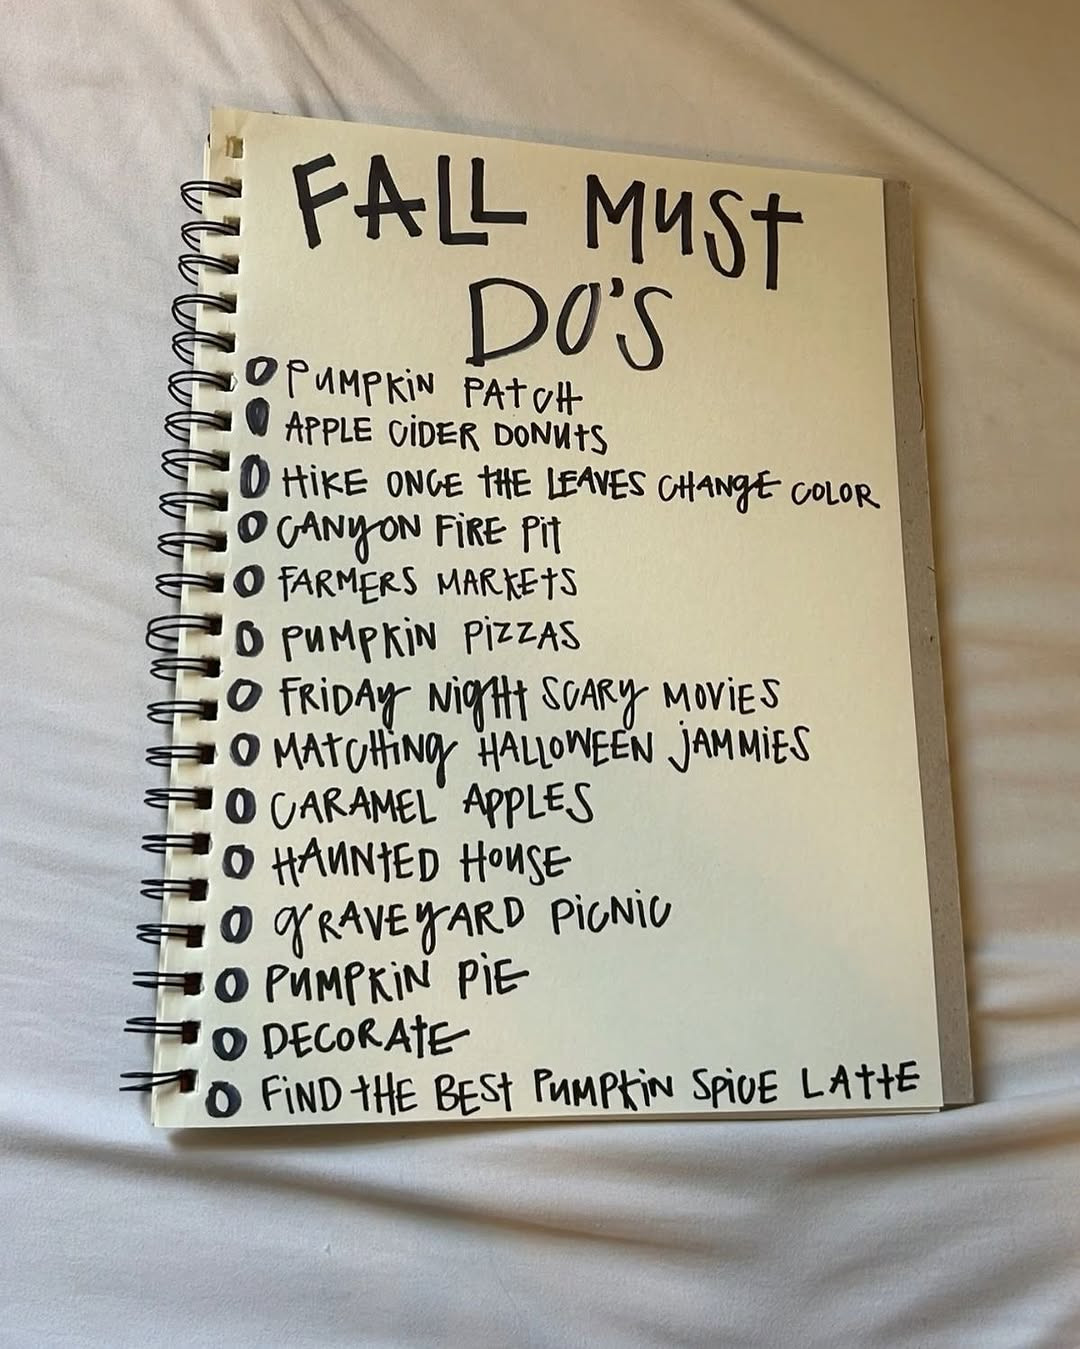 FALL MUST
DO'S
PUMPKIN PATCH
APPLE CIDER DONUTS
HIKE ONCE THE LEAVES CHANGE COLOR
CANYON FIRE PIT
FARMERS MARKETS
PUMPKIN PIZZAS
FRIDAY NIGHT SCARY MOVIES
MATCHING HALLOWEEN JAMMIES
CARAMEL APPLES
HAUNTED HOUSE
GRAVEYARD PICNIC
PUMPKIN PIE
DECORATE
FIND THE BEST PUMPKIN SPICE LATTE